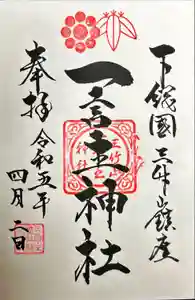 下総國三竹山鎮座
一言主神社
奉拝
令和五年
四月二日